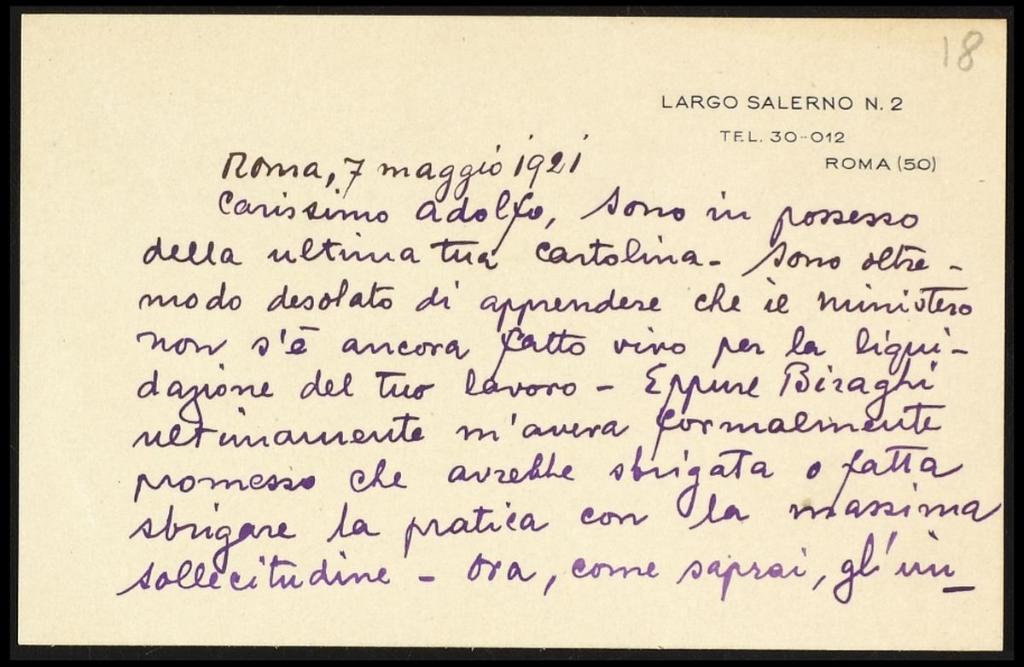 18
LARGO SALERNO N. 2
TEL. 30-012
ROMA (50)
Roma, 7 maggio 1921
Carissimo Adolfo, sono in possesso
della ultima tua cartolina - Sono oltre -
modo desolato di apprendere che il ministero
non s'è ancora fatto vivo per la liqui-
dazione del tuo lavoro - Eppure Biraghi
ultimamente m'aveva formalmente
promesso che avrebbe sbrigata o fatta
sbrigare la pratica con la massima
sollecitudine - Ora, come saprai, gl'im-